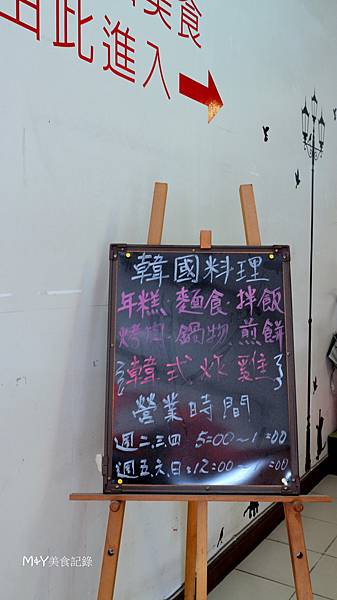 美食
由此進入
韓國料理
年糕.麵食.拌飯
烤肉.鍋物.煎餅
韓式炸雞
營業時間
週二.三.四 5:00~1:00
週五.六.日:12:00~1:00
M+Y美食記錄